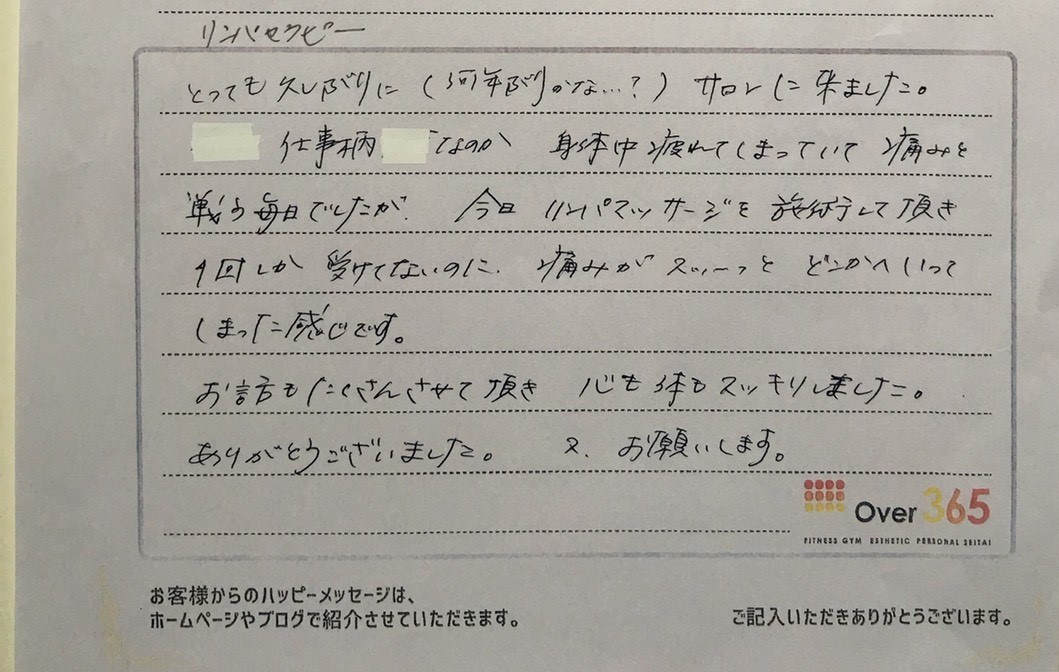 リンパセラピー
とっても久しぶりに（何年ぶりかな…？）サロンに来ました。
仕事柄 なのか 身体中疲れてしまっていて 痛みと
戦う毎日でしたが、 今日 リンパマッサージを 施術して頂き
1回しか 受けてないのに、 痛みが スゥーっと どこかへいって
しまった感じです。
お話もたくさんさせて頂き 心も体もスッキリしました。
ありがとうございました。 又、お願いします。
Over 365
FITNESS GYM ESTHETIC PERSONAL SEITAI
お客様からのハッピーメッセージは、
ホームページやブログで紹介させていただきます。
ご記入いただきありがとうございます。